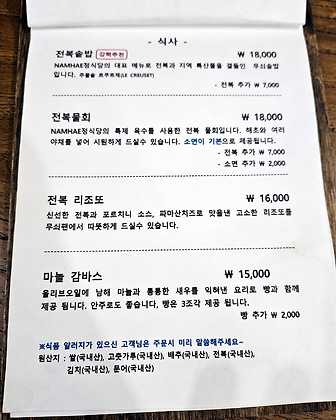 - 식사 -
전복솥밥 강력추천 ₩ 18,000
NAMHAE정식당의 대표 메뉴로 전복과 지역 특산물을 곁들인 무쇠솥밥
입니다. 주물솥 르쿠르제(LE CREUSET)
- 전복 추가 ₩ 7,000
전복물회 ₩ 18,000
NAMHAE정식당의 특제 육수를 사용한 전복 물회입니다. 해초와 여러
야채를 넣어 시원하게 드실수 있습니다. 소면이 기본으로 제공됩니다.
- 전복 추가 ₩ 7,000
- 소면 추가 ₩ 2,000
전복 리조또 ₩ 16,000
신선한 전복과 포르치니 소스, 파마산치즈로 맛을낸 고소한 리조또를
무쇠팬에서 따뜻하게 드실수 있습니다.
마늘 감바스 ₩ 15,000
올리브오일에 남해 마늘과 통통한 새우를 익혀낸 요리로 빵과 함께
제공 됩니다. 안주로도 좋습니다, 빵은 3조각 제공 됩니다.
빵 추가 ₩ 2,000
※식품 알러지가 있으신 고객님은 주문시 미리 말씀해주세요~
원산지 : 쌀(국내산), 고춧가루(국내산), 배추(국내산), 전복(국내산),
김치(국내산), 문어(국내산)